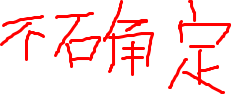 不确定